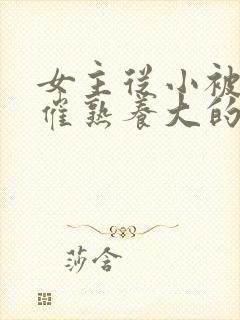 女主从小被
催熟养大的
莎含